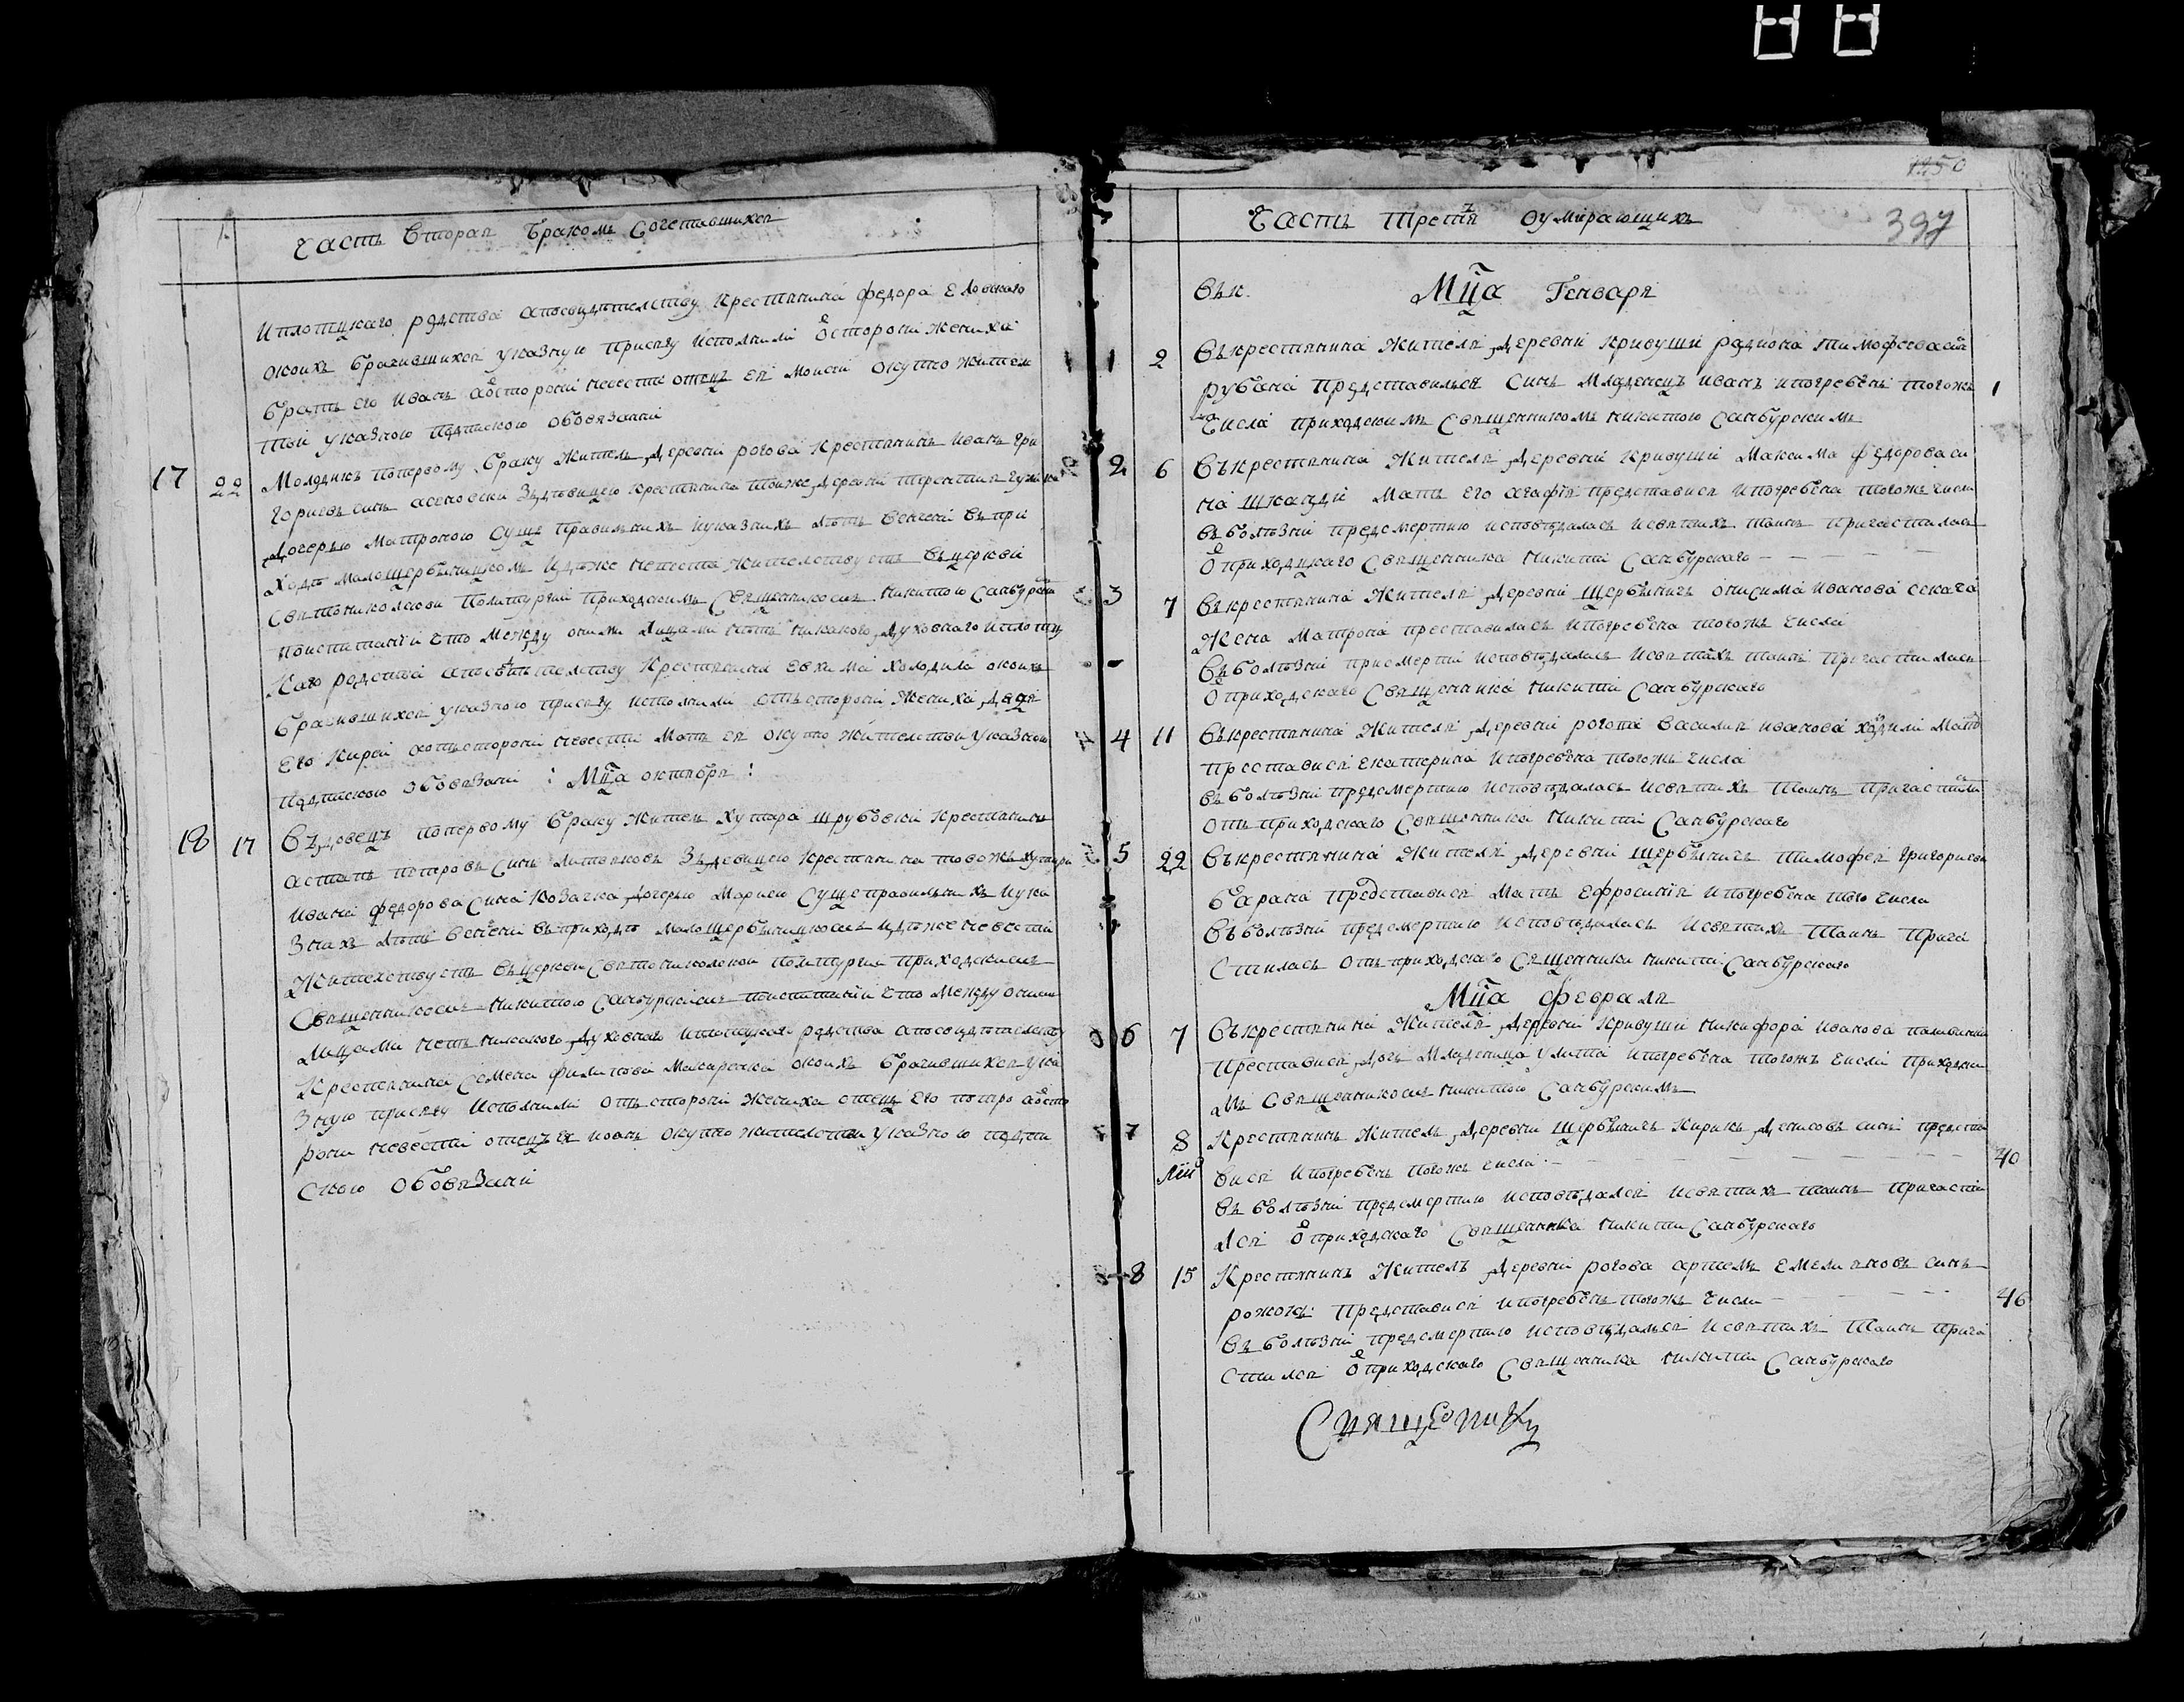 Часть Вторая Бракомъ Сочетавшихся
И плотцкаго родства а посвидѣтелству Крестянина Федора Еловкаго
о коихъ брачившихся указную присягу исполнили о стороні жениха
братъ его Иванъ а о стороні невести отецъ ея Моисій о купно жител
твы указною подпискою обовязаніи
17 22 Молодикъ по первому браку житель деревні Рогова Крестянинъ Иванъ Гри
горіевъ синъ зъ довицею крестянина тоижъ деревні Терентия
дочерью Матроною сущъ правилнихъ и указнихъ лѣтъ венчені въ при
ходѣ Малощербѣницкомъ идѣже невѣста жителствуетъ въ церкви
Святониколаеви по литургіи приходскимъ Священникомъ Никитою Санбурским
по испитаніи что между оними лицами нѣтъ никакого духовнаго и плотц
каго родства а посвѣтителству Крестянина Евхима Холодила о коихъ
брачившихся указною присягу исполнили отъ стороні жениха дядя
его Кирей а отъ стороні невесті мать ея о купно жителства указною
подпискою обовязани : Мца октября :
18 17 Въдовецъ по первому браку жител хутора Шрубовки крестянинъ
Астапъ Петровъ синъ Литвяковъ зъ девицею крестянина того жъ хутора
Ивана Федорова сина Козачка дочерью Мариею суще правильнихъ и ука
знихъ лѣтъ венчени въ приходѣ Малощербѣницкомъ идѣже невесті
жителствуетъ въ церкви Святониколскои по литургіи приходскимъ
Священникомъ Никитою Санбурскимъ по испитаніи что между оними
лицами нетъ никакого духовнаго и плотцкаго родства а посвидѣтелству
Крестянина Семена Филипова Макаренка о коихъ брачившихся ука
зную присягу исполнили отъ стороні жениха отецъ его Петро а о сто
рони невесті отецъ ея Иванъ о купно жителства указною подпи
скою обовязани
Часть Третѧ оумирающихъ
1250
397
въ н. Мца Генваря
1 2 Въ крестянина жителя деревні Кривуши Родиона Тимофеева сна
Рубана представилься синъ младенецъ Иванъ и погребенъ тогожъ 1
числа приходскимъ Священникомъ Никитою Санбурскимъ
2 6 Въ крестянина жителя деревні Кривуші Максима Федорова си
на Шкандѣ мать его Агафія представися и погребена тогожъ числа
въ болѣзні предсмертию исповѣдалась и святихъ таинъ причастилась
о приходцкаго Священника Никити Санбурскаго
3 7 Въ крестянина жителя деревні Щербѣничъ Онисима Иванова Секача
жена Матрона преставилась и погребена тогожъ числа
въ болѣзні при смерті исповѣдалась и святихъ таинъ причастилась
о приходскаго Священника Никити Санбурскаго
4 11 Въ крестянина жителя деревні Рогова Василия Иванова Ходили мать
преставися Екатерина и погребена тогожъ числа
въ болѣзні предсмертию исповѣдалась и святихъ таинъ причастила
отъ приходскаго Священника Никити Санбурскаго
5 22 Въ крестянина жителя деревні Щербѣничъ Тимофея Григориева
Барана представися мать Ефросинія и погребена того числа
въ болѣзні предсмертию исповѣдалась и святихъ таинъ прича
стилась отъ приходскаго Священника Никити Санбурскаго
Мца Февраля
6 7 Въ крестянина жителя деревні Кривуши Никифора Иванова
преставися дочъ младеница Улита и погребена тогожъ числа приходски
мъ Священникомъ Никитою Санбурскимъ
7 8 Крестянинъ житель деревні Щербѣничъ Кирикъ Денисовъ синъ предста
вися и погребенъ тогожъ числа 40
въ болѣзні предсмертию исповѣдался и святихъ таинъ причасти
лся о приходскаго Священника Никити Санбурскаго
8 15 Крестянинъ житель деревні Рогова Артемъ Емелияновъ синъ
представися и погребенъ тогожъ числа 46
въ болѣзні предсмертию исповѣдалься и святихъ таинъ прича
стился о приходскаго Священника Никити Санбурскаго
Священикъ